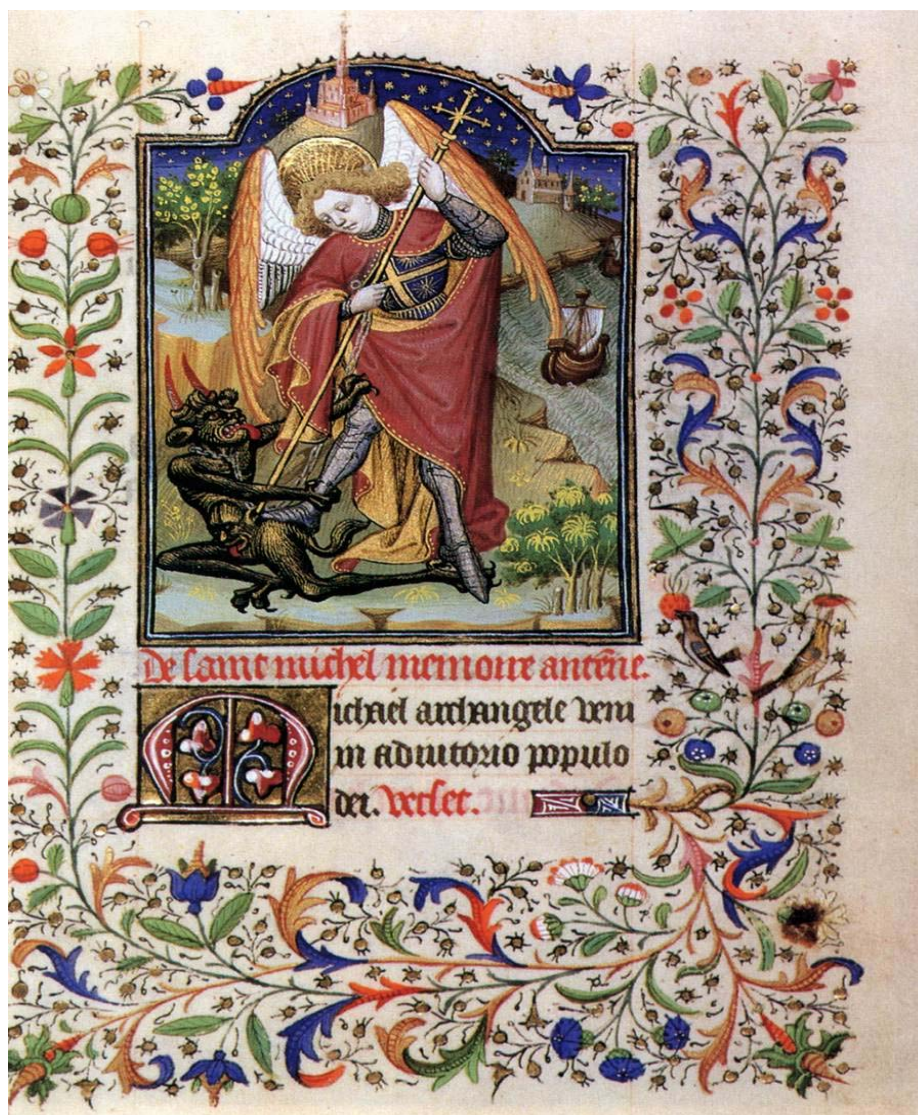 De saint michel memoire antēne.
Michael archangele veni
in adiutorio populo
dei. Verset.